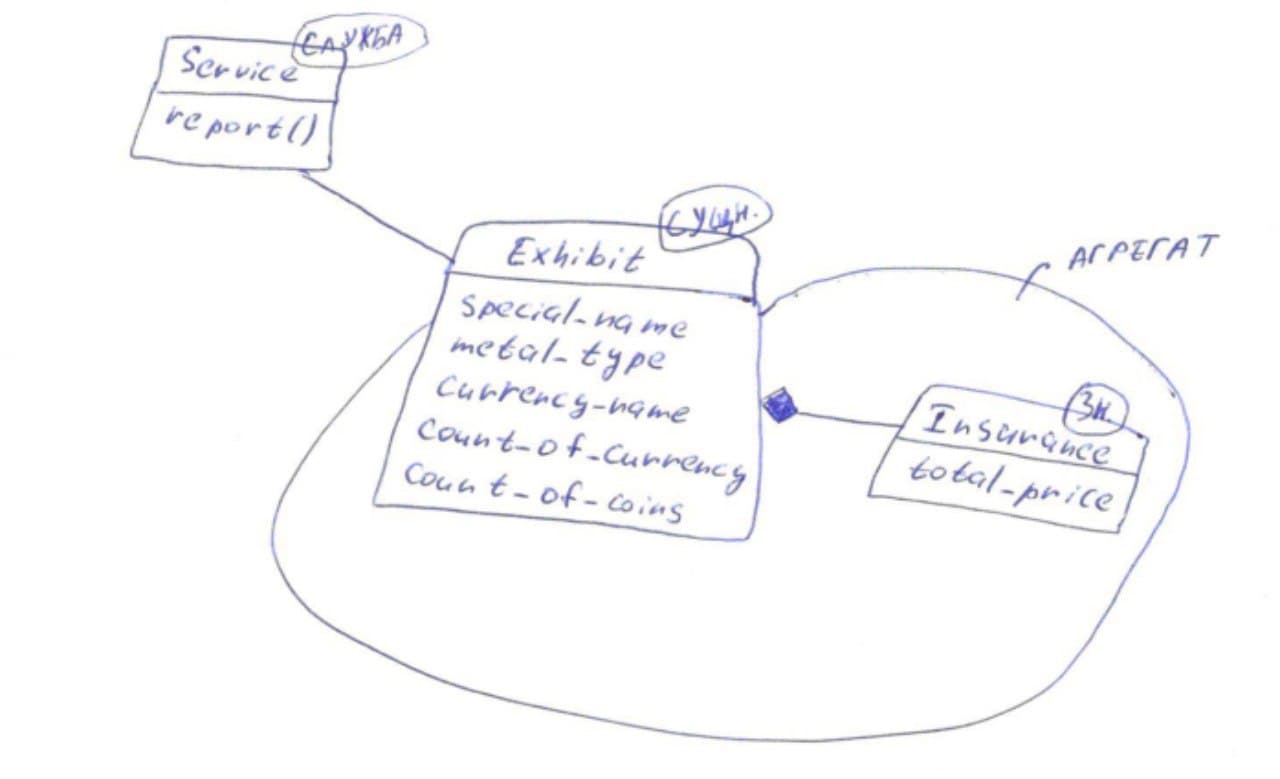 СЛУЖБА
Service
report()
сущн.
Exhibit
special_name
metal_type
currency_name
count_of_currency
count_of_coins
АГРЕГАТ
Зн.
Insurance
total_price